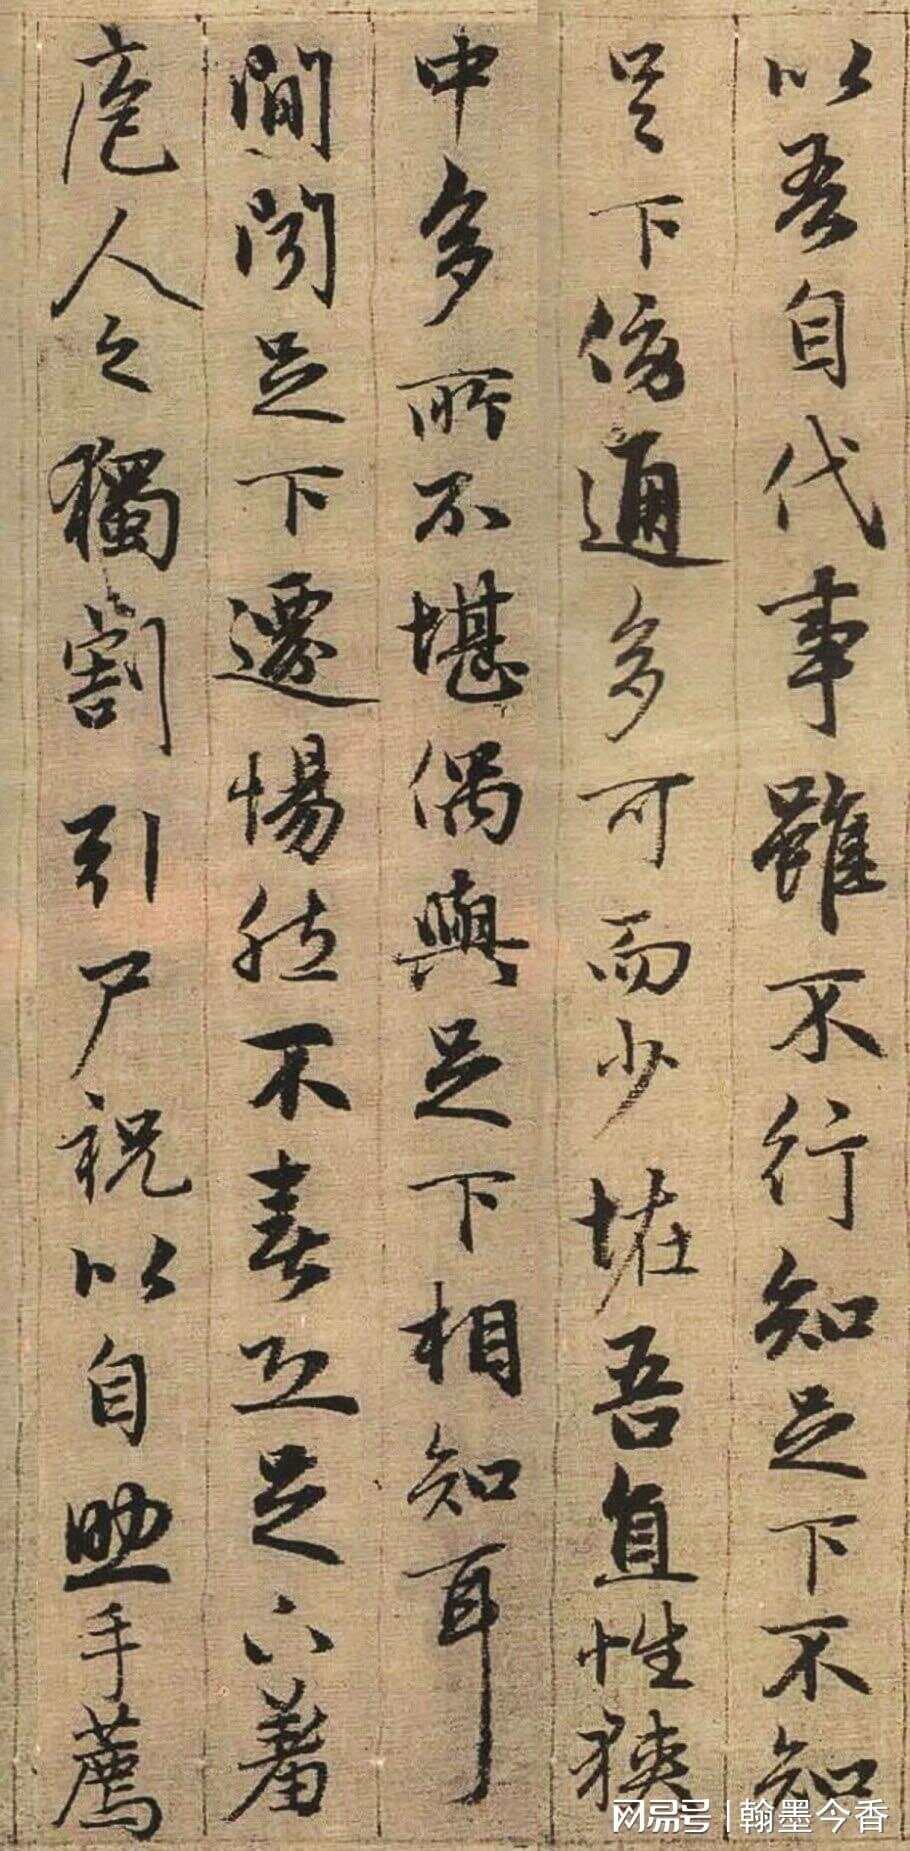 以吾自代事雖不行知足下不知
足下傍通多可而少恠吾直性狹
中多所不堪偶與足下相知耳
間聞足下遷惕然不喜恐足下羞
庖人之獨割引尸祝以自助手薦
网易号 | 翰墨今香